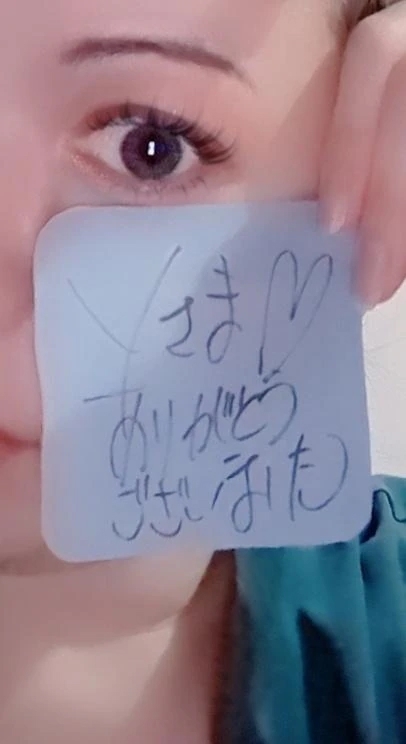 Yさま♡
ありがとう
ございました